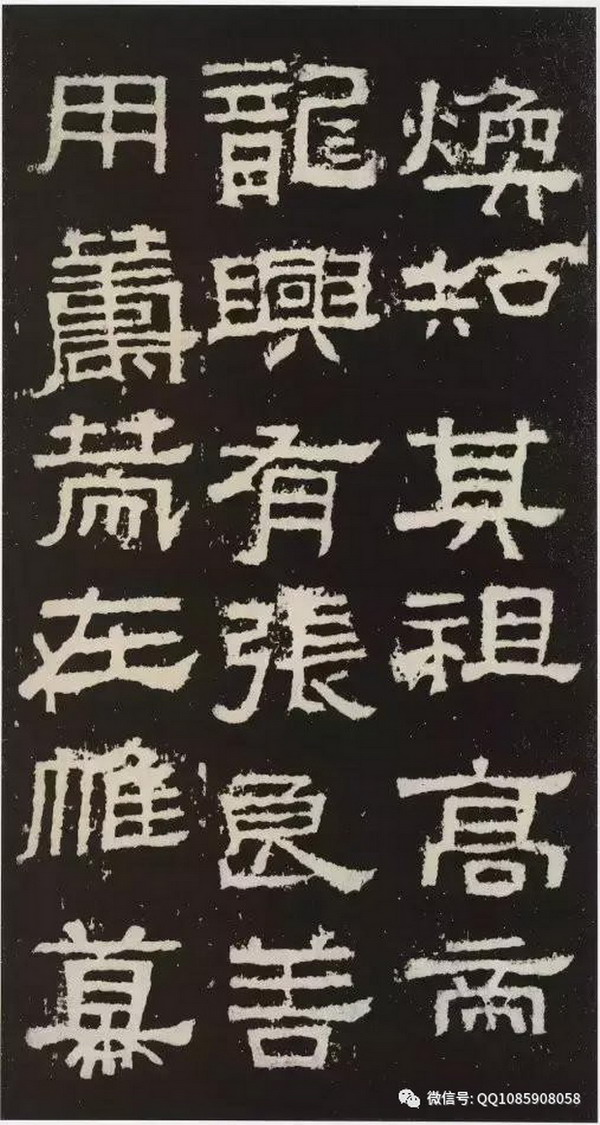 煥知其祖高帝
龍興有張良善
用籌策在帷幕
微信号: QQ1085908058